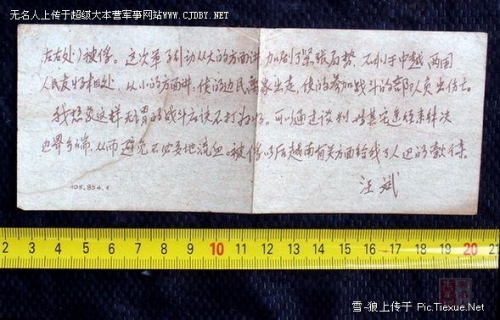 无名人上传于超级大本营军事网站WWW.CJDBY.NET
左右处)被俘。这次军事行动从大的方面讲,加剧了紧張局势,不利于中越两国
人民友好相处,从小的方面讲,使的边民离家出走,使的参加战斗的部队负出伤亡。
我想象这样无谓的战斗应快不打为好。可以通过谈判,
边界争端,从而避免不必要地流血。被俘以后越南有关方面给我人道的
汪斌
105.854.4
2 3 4 5 6 7 8 9 10 11 12 13 14 15 16 17 18 19 20 21
雪-狼上传于 Pic.Tiexue.Net